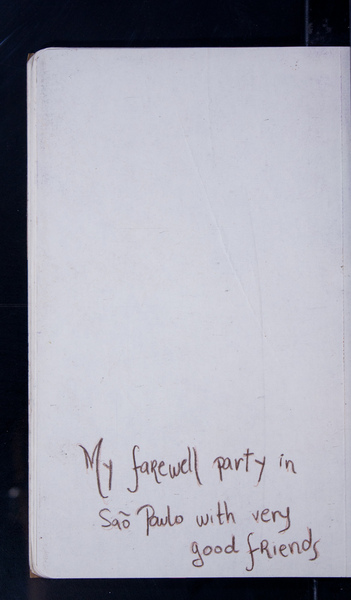 My farewell party in
São Paulo with very
good friends